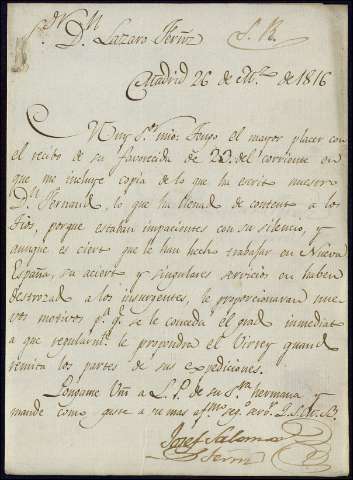 S.r D.n Lazaro Ferñz S. R.
Madrid 26 de de 1816
Muy S.r mio: Tengo el mayor placer con
el recibo de su favorecida de 23 del corriente en
que me incluye copia de lo que ha escrit nuestro
D.n Fernand, lo que ha llenad de content a los
Tios, porque estaban impacientes con su silencio, y
aunque es ciert que le han hech trabajar en Nueva
España, su aciert y singulares servicios en haber
destrozad a los insurgentes, le proporcionaran nue
vos motivos p.a q.e se le conceda el grad inmediat
a que regularm.te le propondra el Virrey quand
remita los partes de sus expediciones.
Pongame Vm a L. P. de su S.ra hermana y
mande como guste a su mas af.mo seg.o serv.r Q. S. M. B.
Josef Salomo
Ferñz